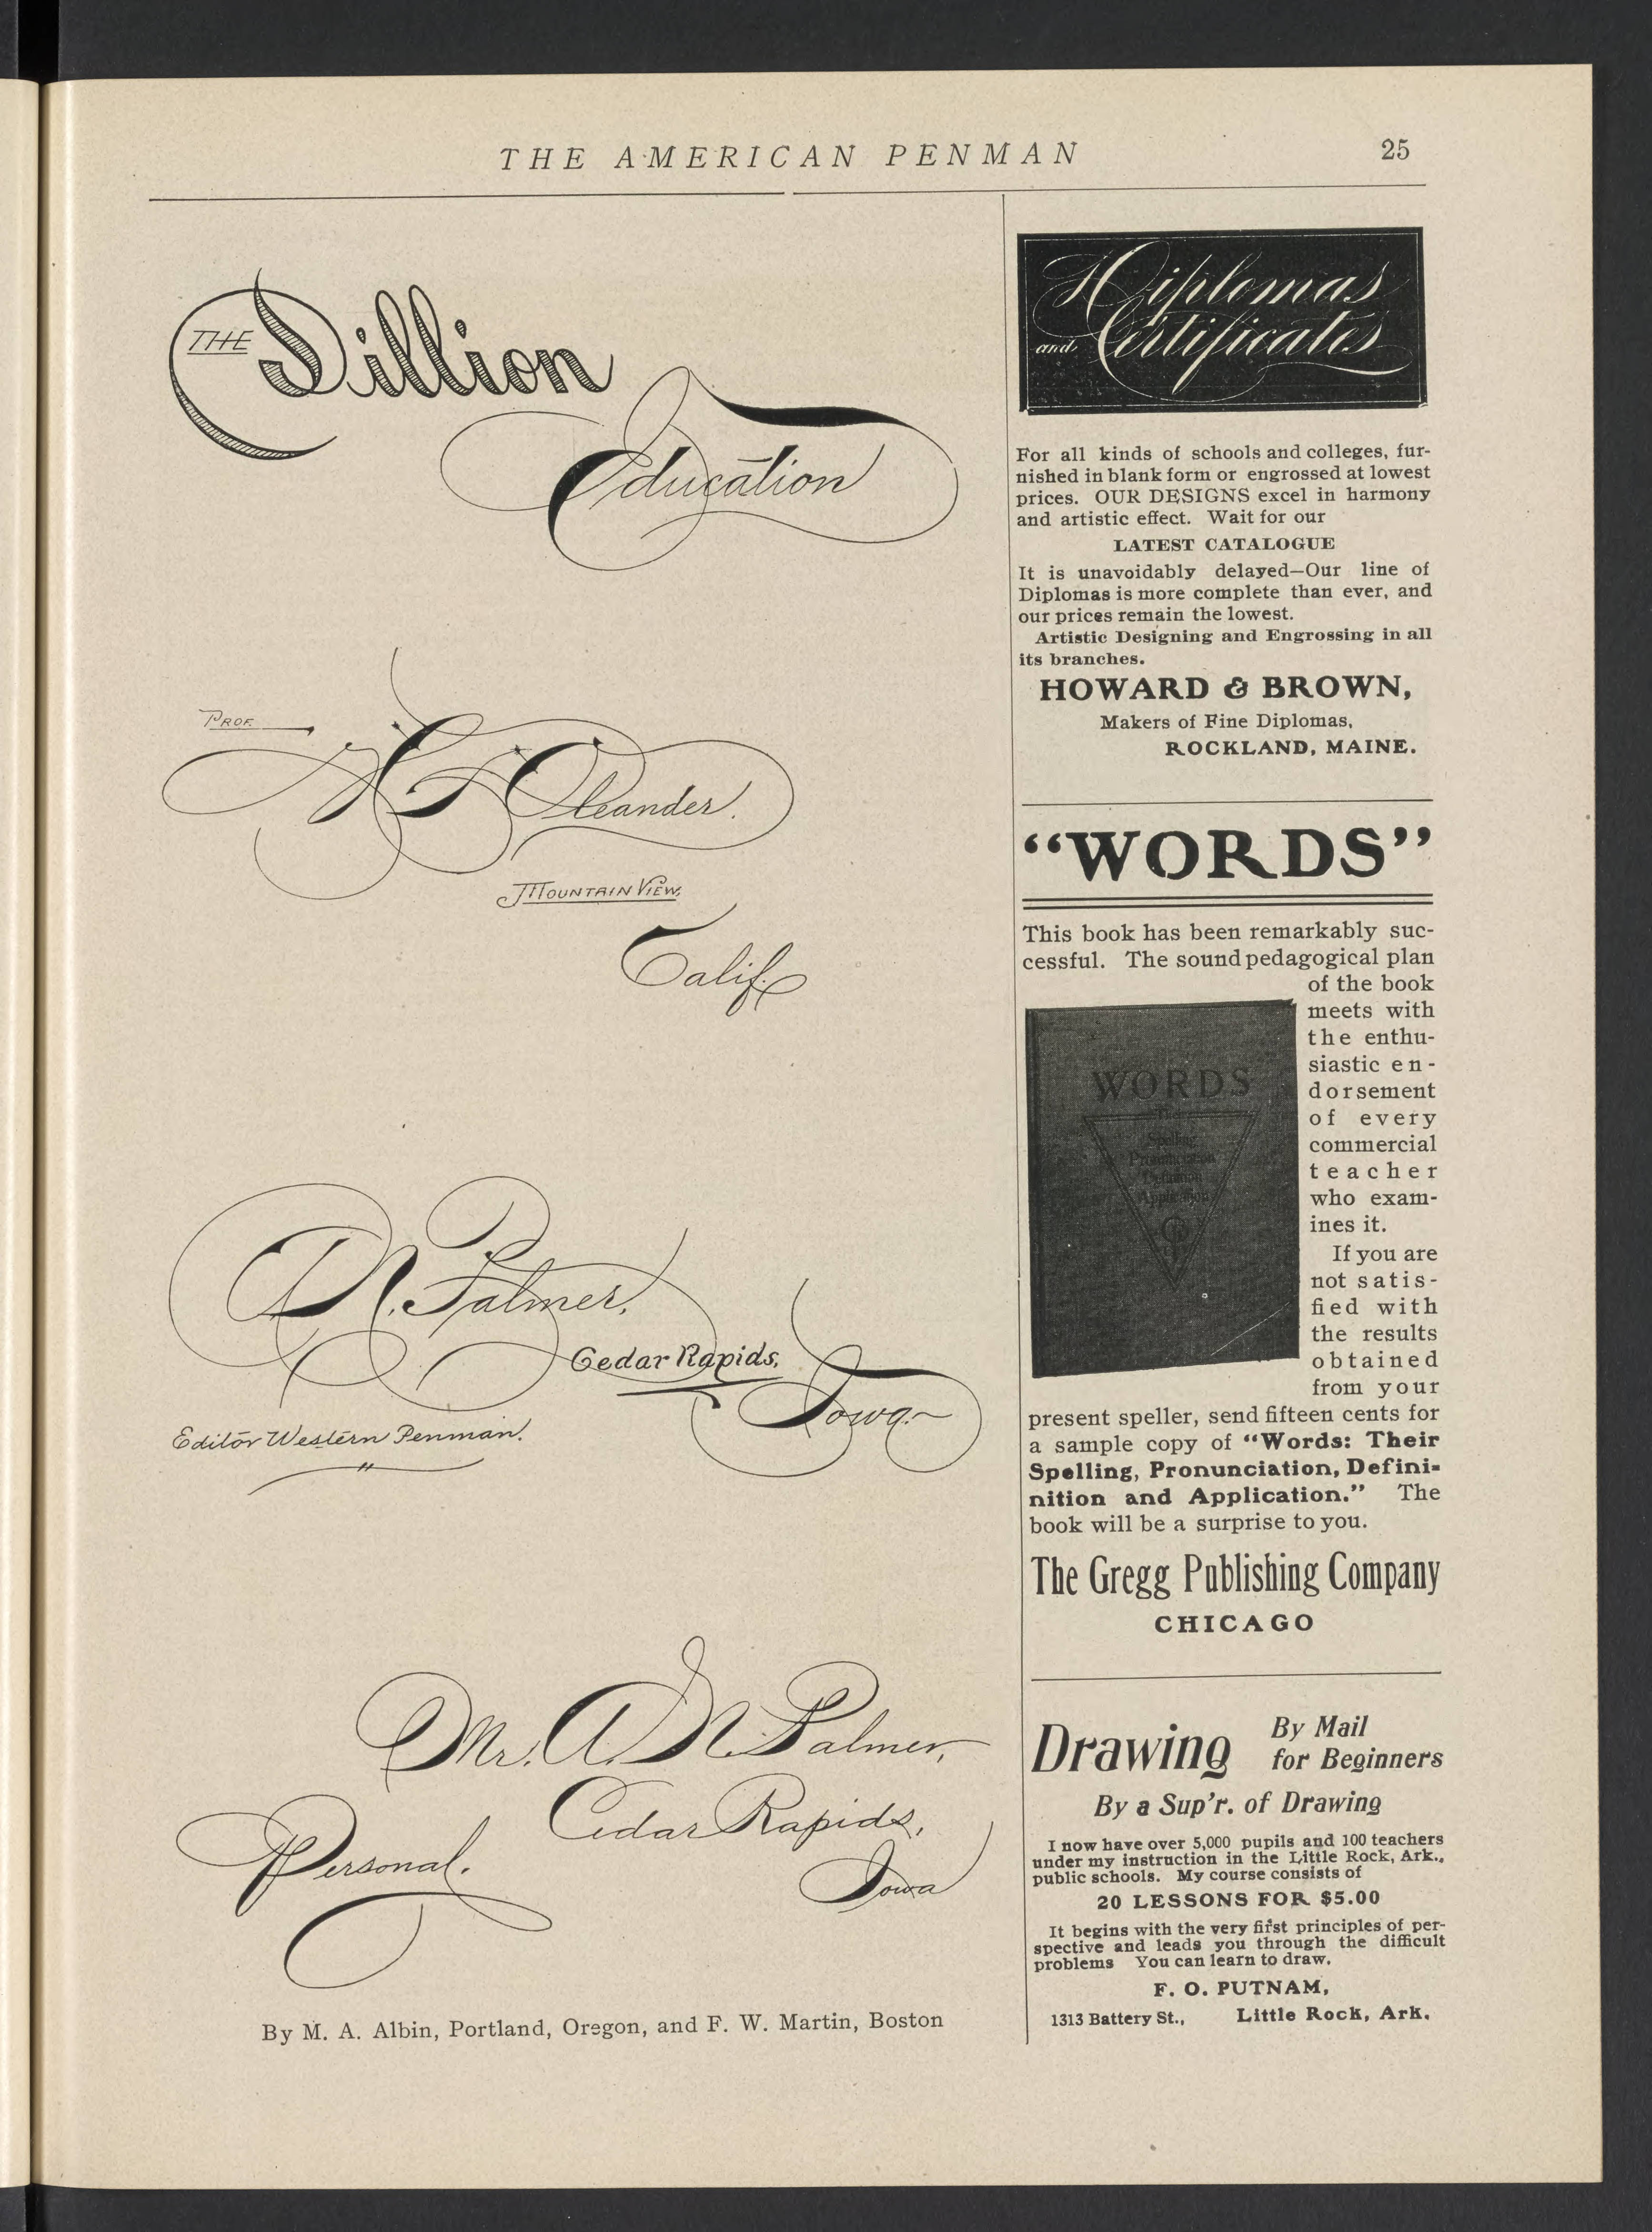 THE AMERICAN PENMAN
25
THE Dillion
Education
PROF.
H F Oleander.
MOUNTAIN VIEW,
Calif.
A N. Palmer,
Cedar Rapids,
Iowa.
Editor Western Penman.
Mr. A. N. Palmer,
Cedar Rapids,
Personal.
Iowa
By M. A. Albin, Portland, Oregon, and F. W. Martin, Boston
Diplomas
and Certificates
For all kinds of schools and colleges, fur-
nished in blank form or engrossed at lowest
prices. OUR DESIGNS excel in harmony
and artistic effect. Wait for our
LATEST CATALOGUE
It is unavoidably delayed—Our line of
Diplomas is more complete than ever, and
our prices remain the lowest.
Artistic Designing and Engrossing in all
its branches.
HOWARD & BROWN,
Makers of Fine Diplomas,
ROCKLAND, MAINE.
"WORDS"
This book has been remarkably suc-
cessful. The sound pedagogical plan
of the book
meets with
the enthu-
siastic en-
dorsement
of every
commercial
teacher
who exam-
ines it.
If you are
not satis-
fied with
the results
obtained
from your
WORDS
Their
Spelling
Pronunciation
Definition
Application
present speller, send fifteen cents for
a sample copy of "Words: Their
Spelling, Pronunciation, Defini-
nition and Application." The
book will be a surprise to you.
The Gregg Publishing Company
CHICAGO
Drawing
By Mail
for Beginners
By a Sup'r. of Drawing
I now have over 5,000 pupils and 100 teachers
under my instruction in the Little Rock, Ark.,
public schools. My course consists of
20 LESSONS FOR $5.00
It begins with the very first principles of per-
spective and leads you through the difficult
problems You can learn to draw.
F. O. PUTNAM,
1313 Battery St., Little Rock, Ark.